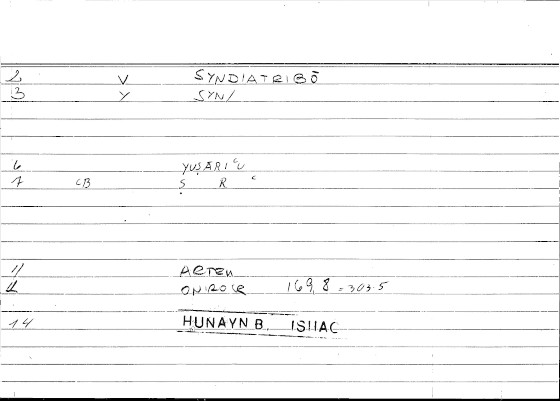 2 V SYNDIATRIBŌ
3 Y SYN/
6 YUṢĀRIʿU
7 CB Ṣ R ʿ
11 ARTEM
12 ONIROCR 169,8 = 303.5
14 HUNAYN B. ISHAC